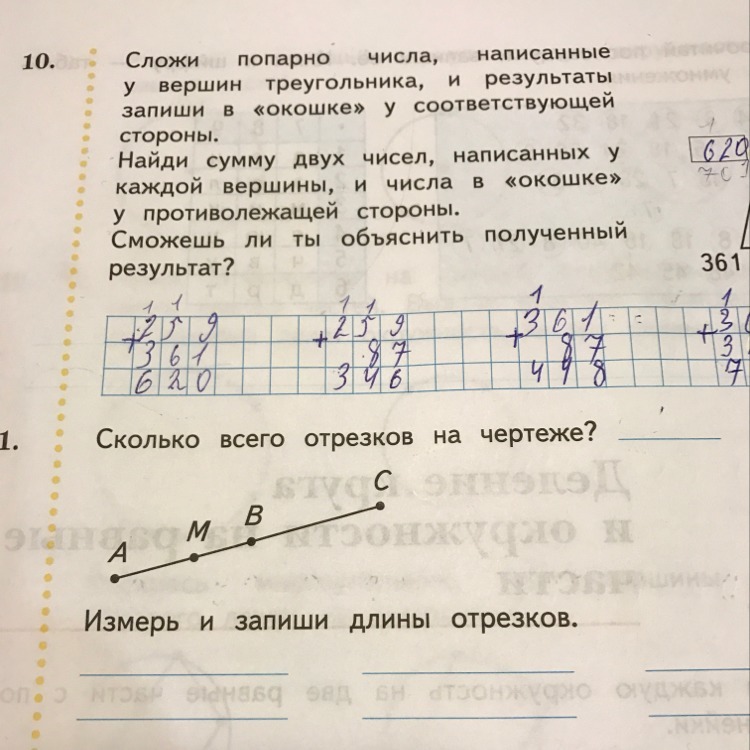 10. Сложи попарно числа, написанные
у вершин треугольника, и результаты
запиши в «окошке» у соответствующей
стороны.
Найди сумму двух чисел, написанных у
каждой вершины, и числа в «окошке»
у противолежащей стороны.
Сможешь ли ты объяснить полученный
результат?
1
620
703
361
1 1 1 1 1 1
+259 +259 +361 +36
361 87 87 3
620 346 448 7
1. Сколько всего отрезков на чертеже?
A M B C
Измерь и запиши длины отрезков.